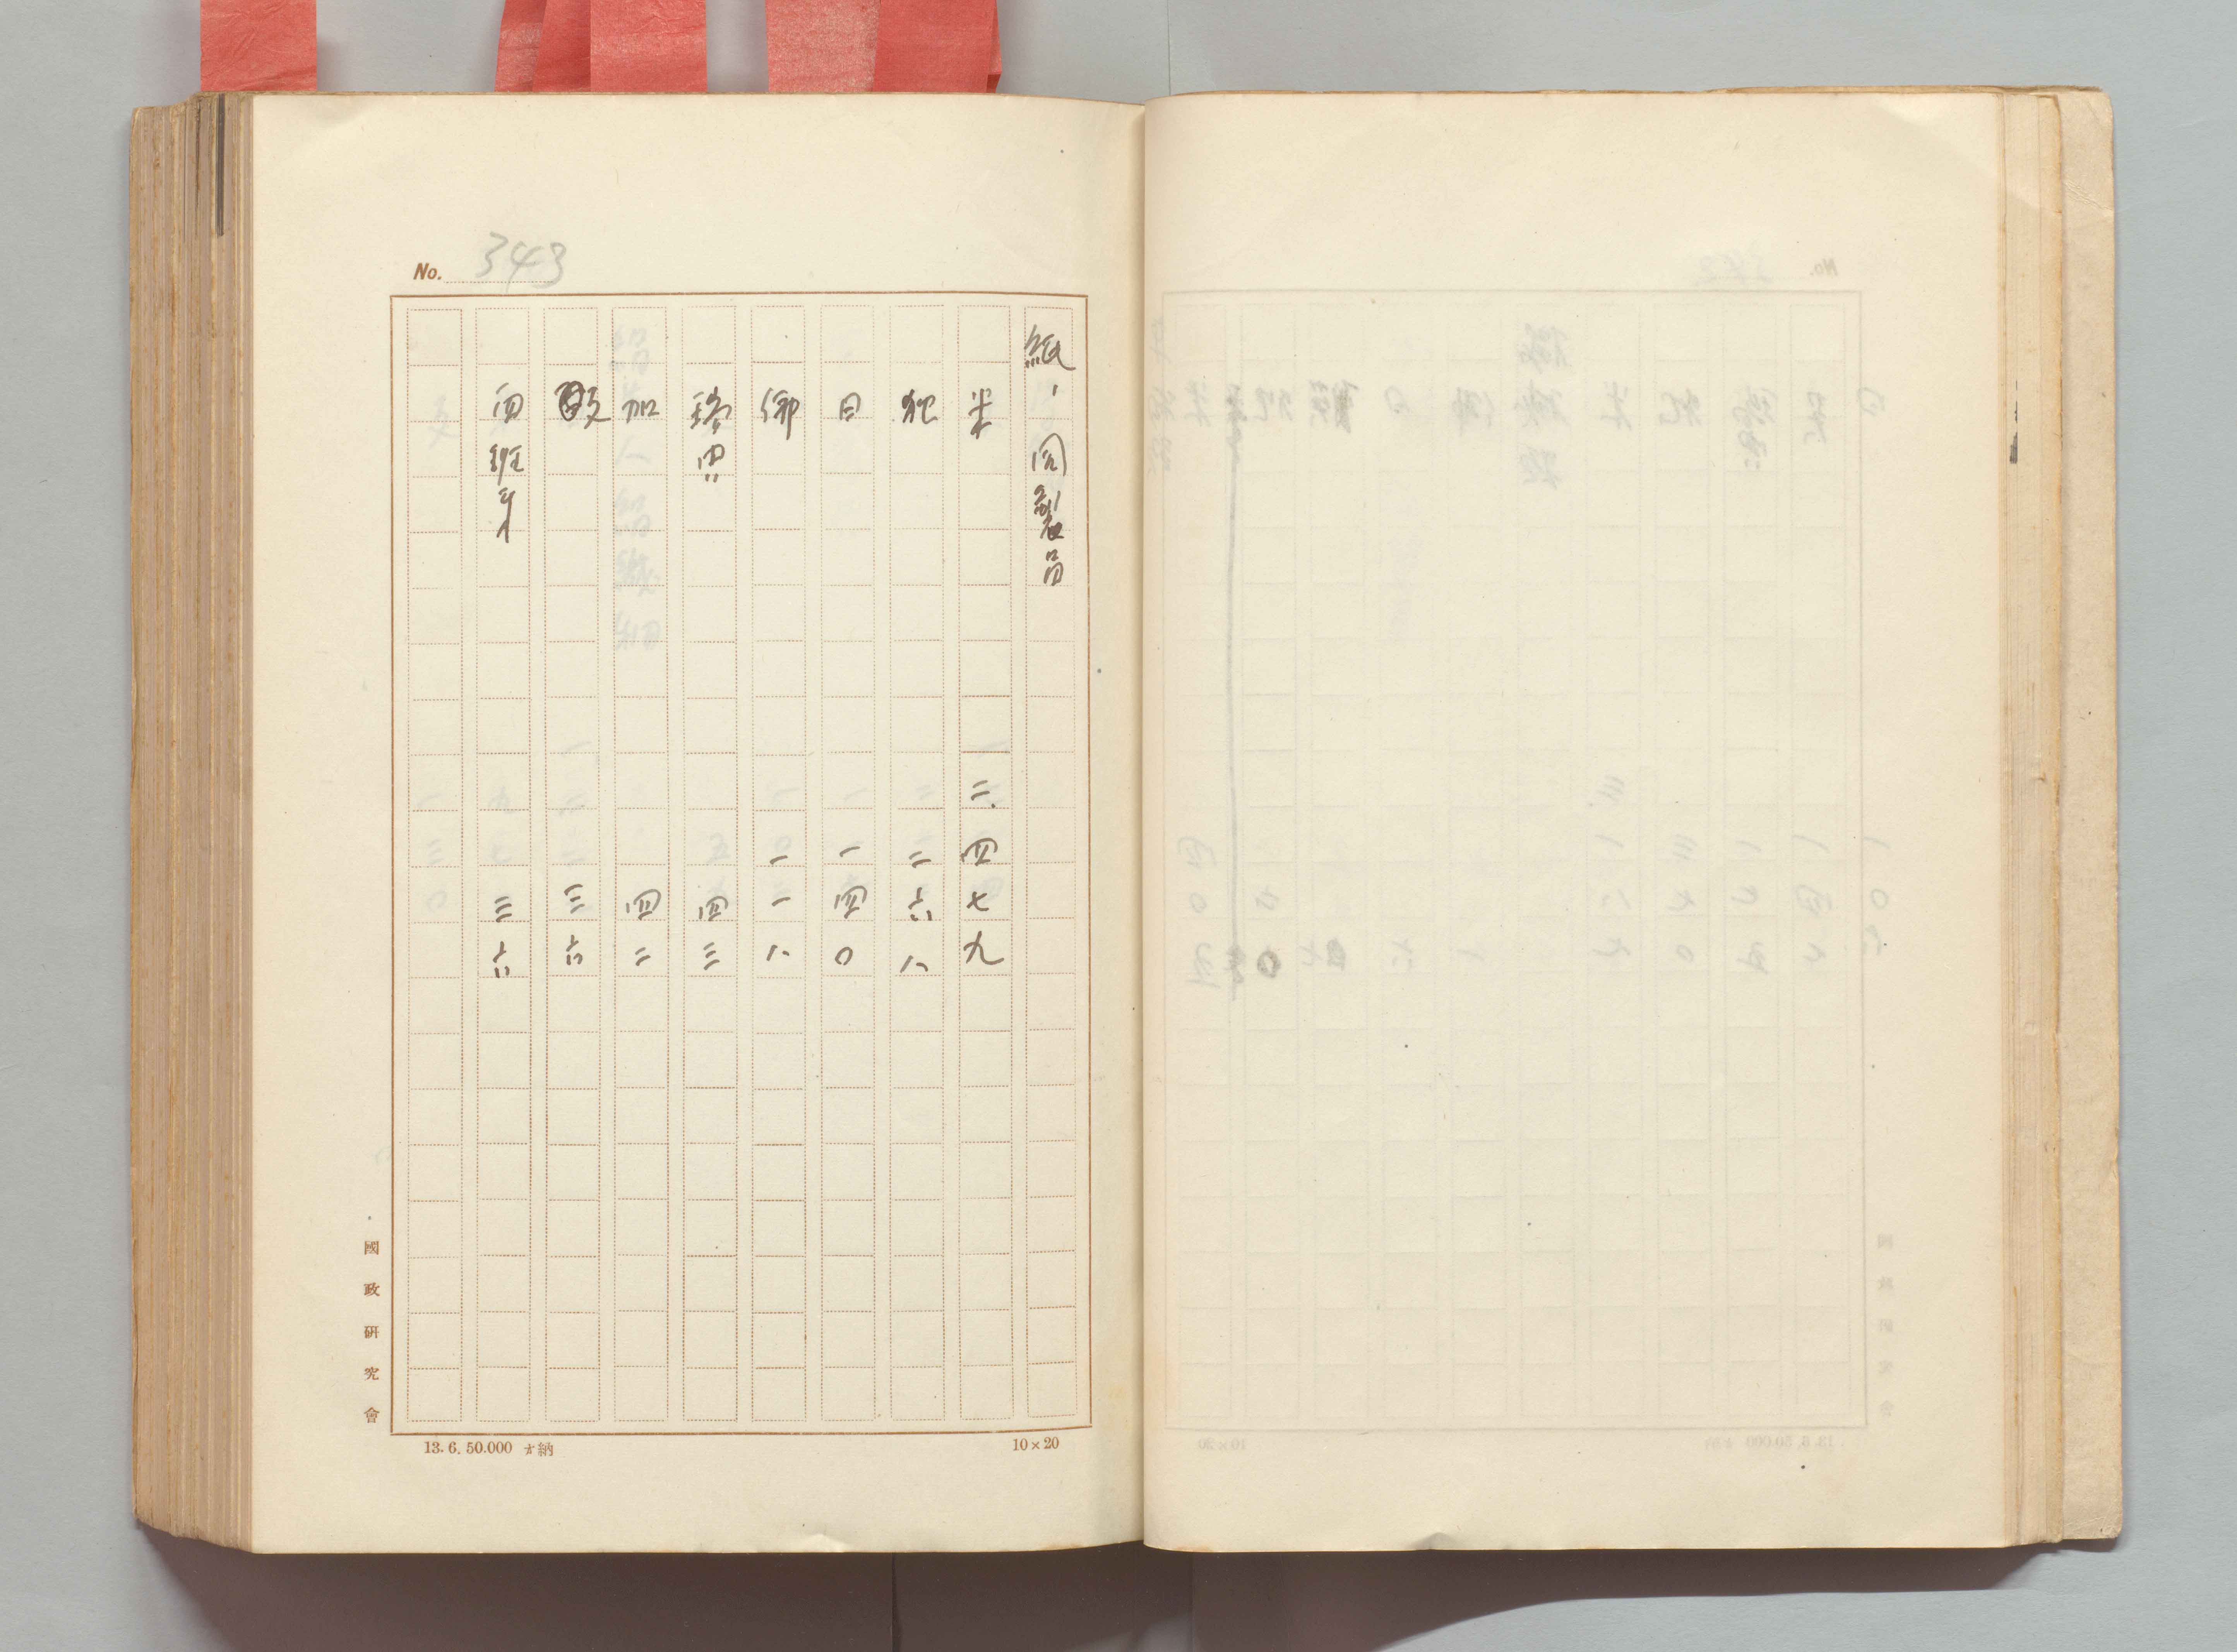 No. 343
紙、同製品
米 二.四七九
独 二六八
日 一四〇
一一八
瑞典 四三
加 四二
三六
西班牙 三六
國政研究會
13. 6. 50.000 納
10×20